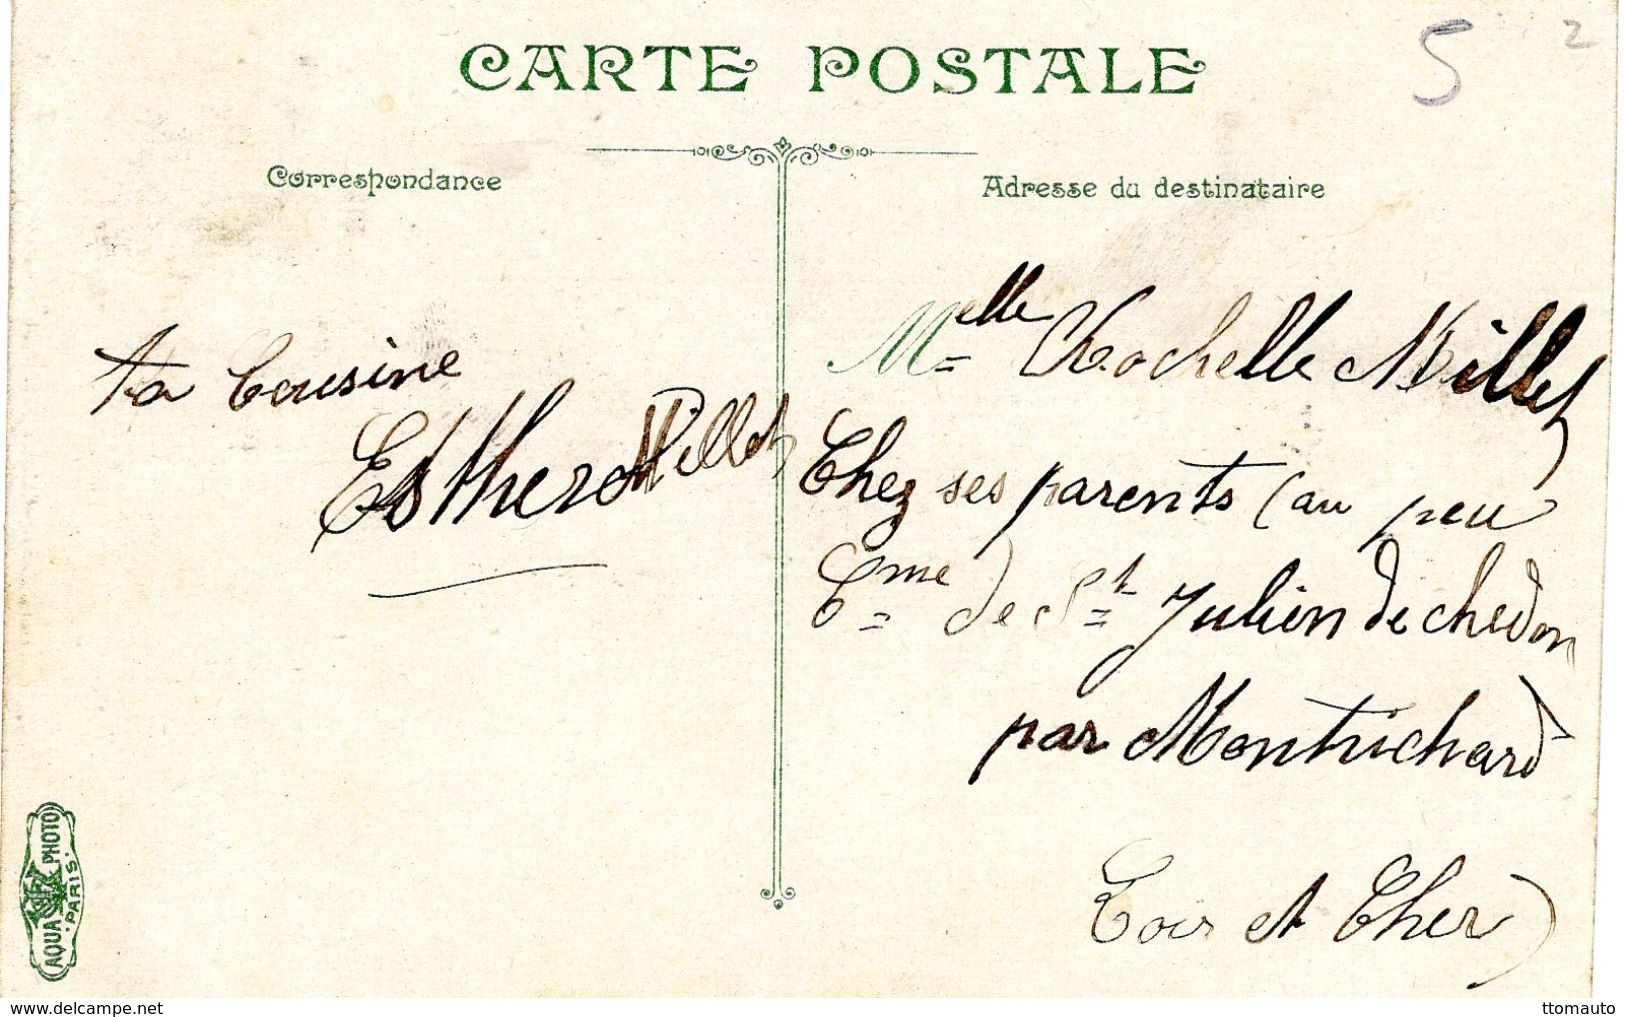 CARTE POSTALE
5
2
Correspondance
Adresse du destinataire
ta Cousine
Esther Millet
Melle Rochelle Millet
Chez ses parents (au peu
Cme) de St Julien de chedon
par Montrichard
Loir et Cher)
AQUA PHOTO
PARIS
https://www.delcampe.net
ttomauto